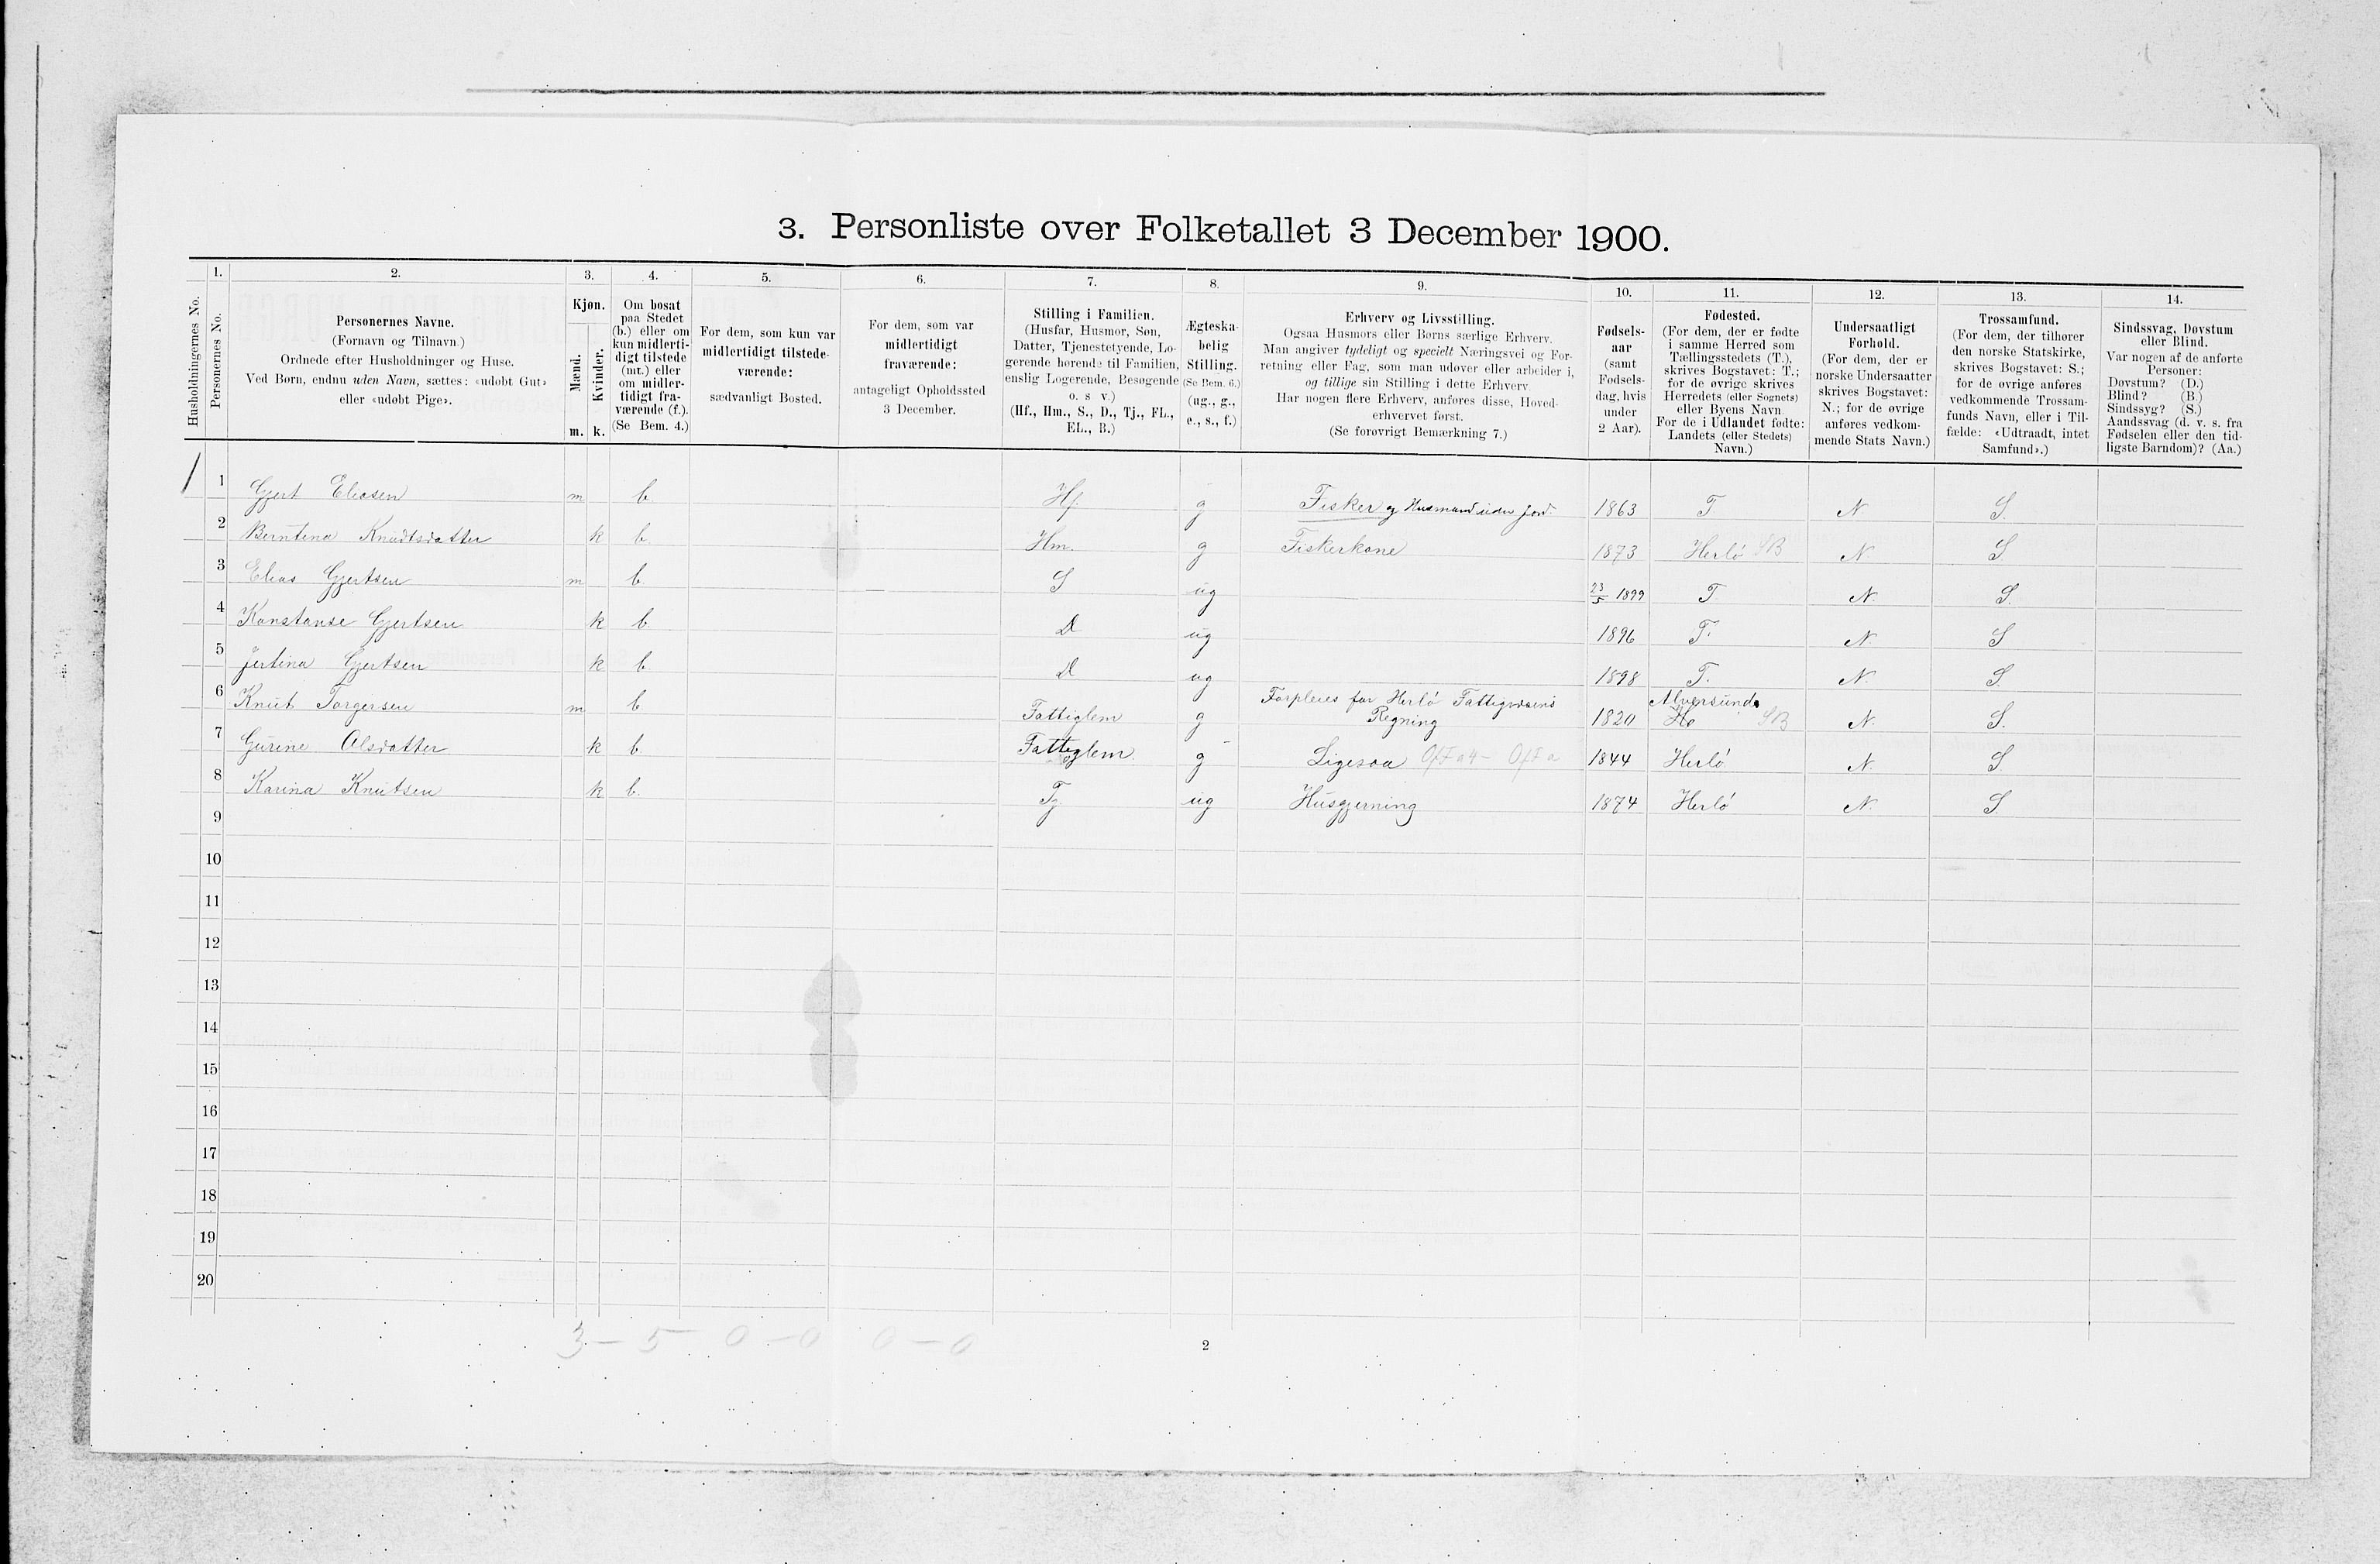 3. Personliste over Folketallet 3 December 1900.
Husholdningernes No.
1.
Personernes No.
2.
Personernes Navne.
(Fornavn og Tilnavn.)
Ordnede efter Husholdninger og Huse.
Ved Børn, endnu uden Navn, sættes: «udøbt Gut»
eller «udøbt Pige».
3.
Kjøn.
Mænd.
Kvinder.
m. k.
4.
Om bosat
paa Stedet
(b.) eller om
kun midlerti-
digt tilstede
(mt.) eller
om midler-
tidigt fra-
værende (f.).
(Se Bem. 4.)
5.
For dem, som kun var
midlertidigt tilstede-
værende:
sædvanligt Bosted.
6.
For dem, som var
midlertidigt
fraværende:
antageligt Opholdssted
3 December.
7.
Stilling i Familien.
(Husfar, Husmor, Søn,
Datter, Tjenestetyende, Lo-
gerende hørende til Familien,
enslig Logerende, Besøgende
o. s v.)
(Hf., Hm., S., D., Tj., FL.,
EL., B.)
8.
Ægteska-
belig
Stilling.
(Se Bem. 6.)
(ug., g.,
e., s., f.)
9.
Erhverv og Livsstilling.
Ogsaa Husmors eller Børns særlige Erhverv.
Man angiver tydeligt og specielt Næringsvei og For-
retning eller Fag, som man udøver eller arbeider i,
og tillige sin Stilling i dette Erhverv.
Har nogen flere Erhverv, anføres disse, Hoved-
erhvervet først.
(Se forøvrigt Bemærkning 7.)
10.
Fødsels-
aar
(samt
Fødsels-
dag, hvis
under
2 Aar).
11.
Fødested.
(For dem, der er fødte
i samme Herred som
Tællingsstedets (T.),
skrives Bogstavet: T.;
for de øvrige skrives
Herredets (eller Sognets)
eller Byens Navn.
For de i Udlandet fødte:
Landets (eller Stedets)
Navn.)
12.
Undersaatligt
Forhold.
(For dem, der er
norske Undersaatter
skrives Bogstavet:
N.; for de øvrige
anføres vedkom-
mende Stats Navn.)
13.
Trossamfund.
(For dem, der tilhører
den norske Statskirke,
skrives Bogstavet: S.;
for de øvrige anføres
vedkommende Trossam-
funds Navn, eller i Til-
fælde: «Udtraadt, intet
Samfund».)
14.
Sindssvag, Døvstum
eller Blind.
Var nogen af de anførte
Personer:
Døvstum? (D.)
Blind? (B.)
Sindssyg? (S.)
Aandssvag (d. v. s. fra
Fødselen eller den tid-
ligste Barndom)? (Aa.)
1 Gjert Eliasen m b. Hf. g Fisker og Husmand uden jord. 1863 T N. S.
2 Berntina Knudtsdatter k b. Hm. g Fiskerkone 1873 Herlö SB N. S
3 Elias Gjertsen m b. S ug 23/5 1899 T N. S.
4 Konstanse Gjertsen k b. D ug 1896 T. N. S
5 Jertina Gjertsen k b. D ug 1898 T. N. S.
6 Knut Torgersen m b. Fattiglem g Forpleies for Herlö Fattigvæsens Regning 1820 Alversund SB N. S.
7 Gurine Olsdatter k b. Fattiglem g Ligesaa 1844 Herlö N. S
8 Karina Knutsen k b. Tj ug Husgjerning 1874 Herlö N S
9
10
11
12
13
14
15
16
17
18
19
20
3 - 5 0 - 0 0 - 0
2